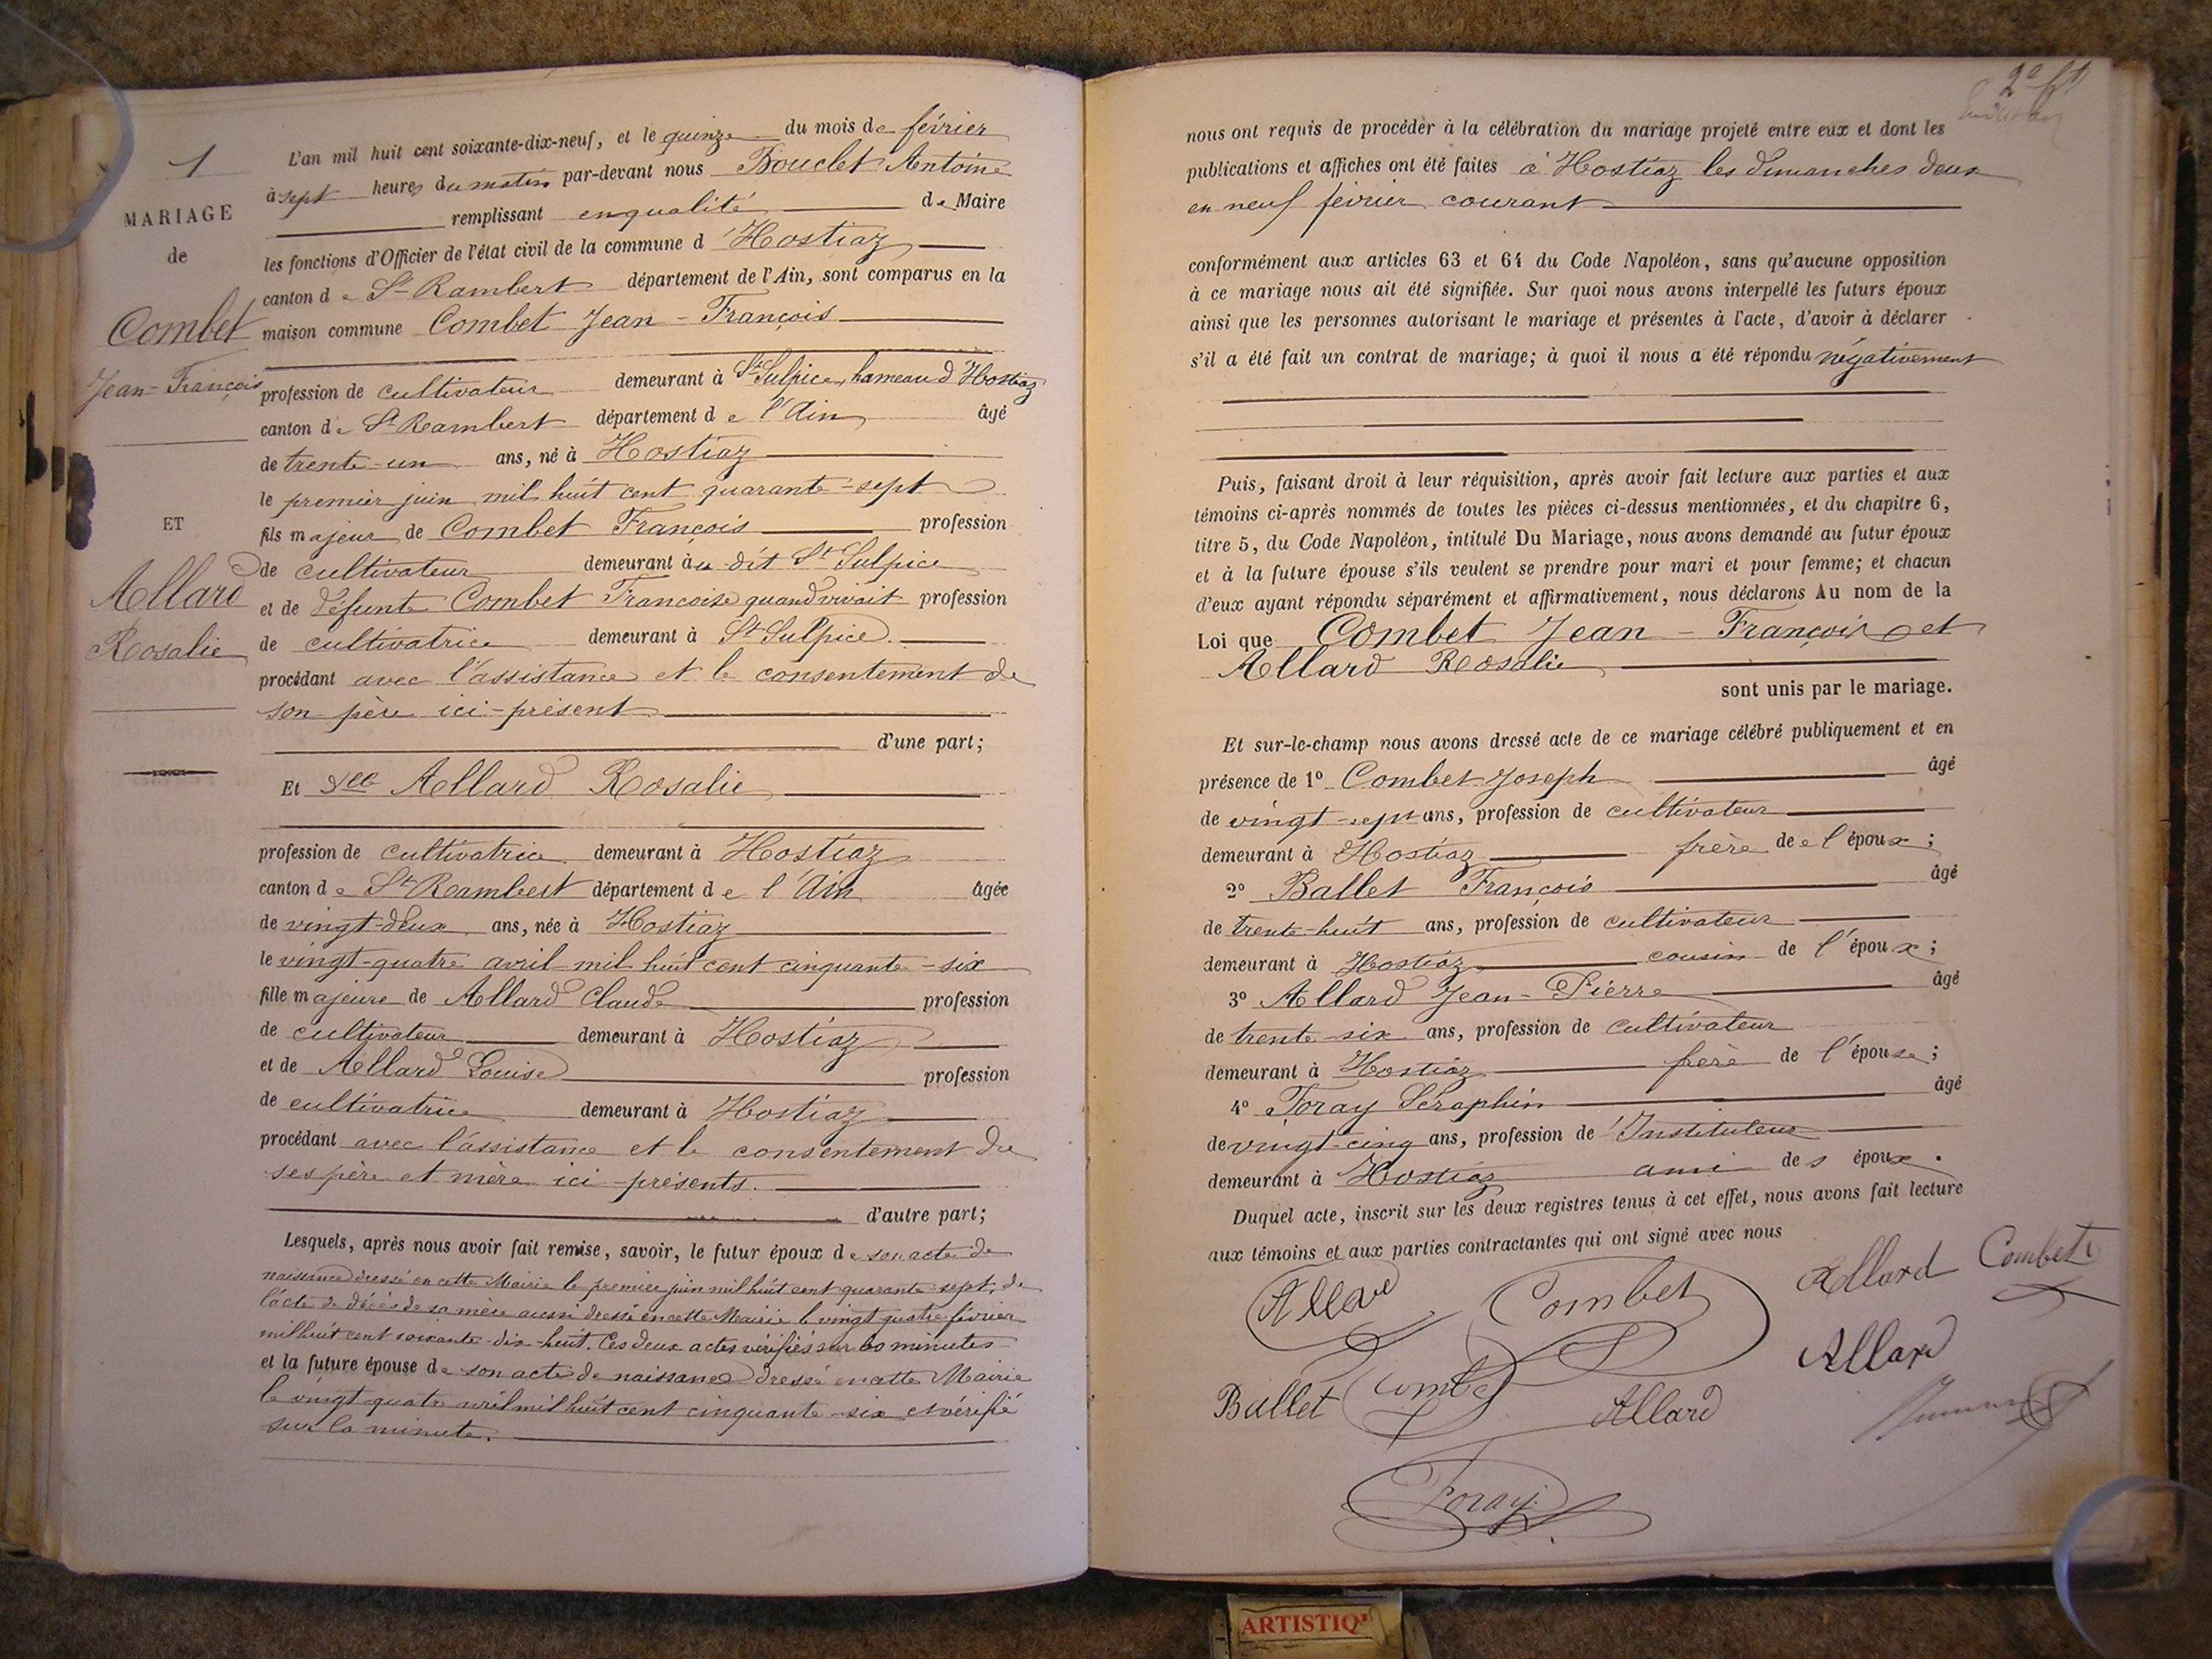 1
MARIAGE
de
Combet
Jean-François
ET
Allard
Rosalie
L'an mil huit cent soixante-dix-neuf, et le quinze du mois de février
à sept heures du matin par-devant nous Bouclet Antoine
remplissant en qualité de Maire
les fonctions d'Officier de l'état civil de la commune d'Hostiaz
canton de St Rambert département de l'Ain, sont comparus en la
maison commune Combet Jean-François
profession de cultivateur demeurant à St Sulpice, hameau d'Hostiaz
canton de St Rambert département de l'Ain âgé
de trente-un ans, né à Hostiaz
le premier juin mil huit cent quarante-sept
fils majeur de Combet François profession
de cultivateur demeurant àu dit St Sulpice
et de défunte Combet Francoise quand vivait profession
de cultivatrice demeurant à St Sulpice.
procédant avec l'assistance et le consentement de
son père ici-présent
d'une part;
Et Dlle Allard Rosalie
profession de cultivatrice demeurant à Hostiaz
canton de St Rambert département de l'Ain âgée
de vingt-deux ans, née à Hostiaz
le vingt-quatre avril mil huit cent cinquante-six
fille majeure de Allard Claude profession
de cultivateur demeurant à Hostiaz
et de Allard Louise profession
de cultivatrice demeurant à Hostiaz
procédant avec l'assistance et le consentement de
ses père et mère ici-présents.
d'autre part;
Lesquels, après nous avoir fait remise, savoir, le futur époux de son acte de
naissance dressé en cette Mairie le premier juin mil huit cent quarante-sept, de
l'acte de décès de sa mère aussi dressé en cette Mairie le vingt quatre février
mil huit cent soixante-dix-huit. Ces deux actes vérifiés sur les minutes
et la future épouse de son acte de naissance dressé en cette Mairie
le vingt-quatre avril mil huit cent cinquante-six et vérifié
sur la minute.
2e ft
nous ont requis de procéder à la célébration du mariage projeté entre eux et dont les
publications et affiches ont été faites à Hostiaz les dimanches deux
en neuf février courant
conformément aux articles 63 et 64 du Code Napoléon, sans qu'aucune opposition
à ce mariage nous ait été signifiée. Sur quoi nous avons interpellé les futurs époux
ainsi que les personnes autorisant le mariage et présentes à l'acte, d'avoir à déclarer
s'il a été fait un contrat de mariage; à quoi il nous a été répondu négativement
Puis, faisant droit à leur réquisition, après avoir fait lecture aux parties et aux
témoins ci-après nommés de toutes les pièces ci-dessus mentionnées, et du chapitre 6,
titre 5, du Code Napoléon, intitulé Du Mariage, nous avons demandé au futur époux
et à la future épouse s'ils veulent se prendre pour mari et pour femme; et chacun
d'eux ayant répondu séparément et affirmativement, nous déclarons Au nom de la
Loi que Combet Jean-François et
Allard Rosalie
sont unis par le mariage.
Et sur-le-champ nous avons dressé acte de ce mariage célébré publiquement et en
présence de 1º Combet Joseph âgé
de vingt-sept ans, profession de cultivateur
demeurant à Hostiaz frère de l'époux;
2º Ballet François âgé
de trente-huit ans, profession de cultivateur
demeurant à Hostiaz cousin de l'époux;
3º Allard Jean-Pierre âgé
de trente-six ans, profession de cultivateur
demeurant à Hostiaz frère de l'épouse;
4º Foray Séraphin âgé
de vingt-cinq ans, profession de Instituteur
demeurant à Hostiaz ami des époux.
Duquel acte, inscrit sur les deux registres tenus à cet effet, nous avons fait lecture
aux témoins et aux parties contractantes qui ont signé avec nous
Allard Combet Allard Combet
Allard
Ballet Combet Allard
Foray
ARTISTIQ